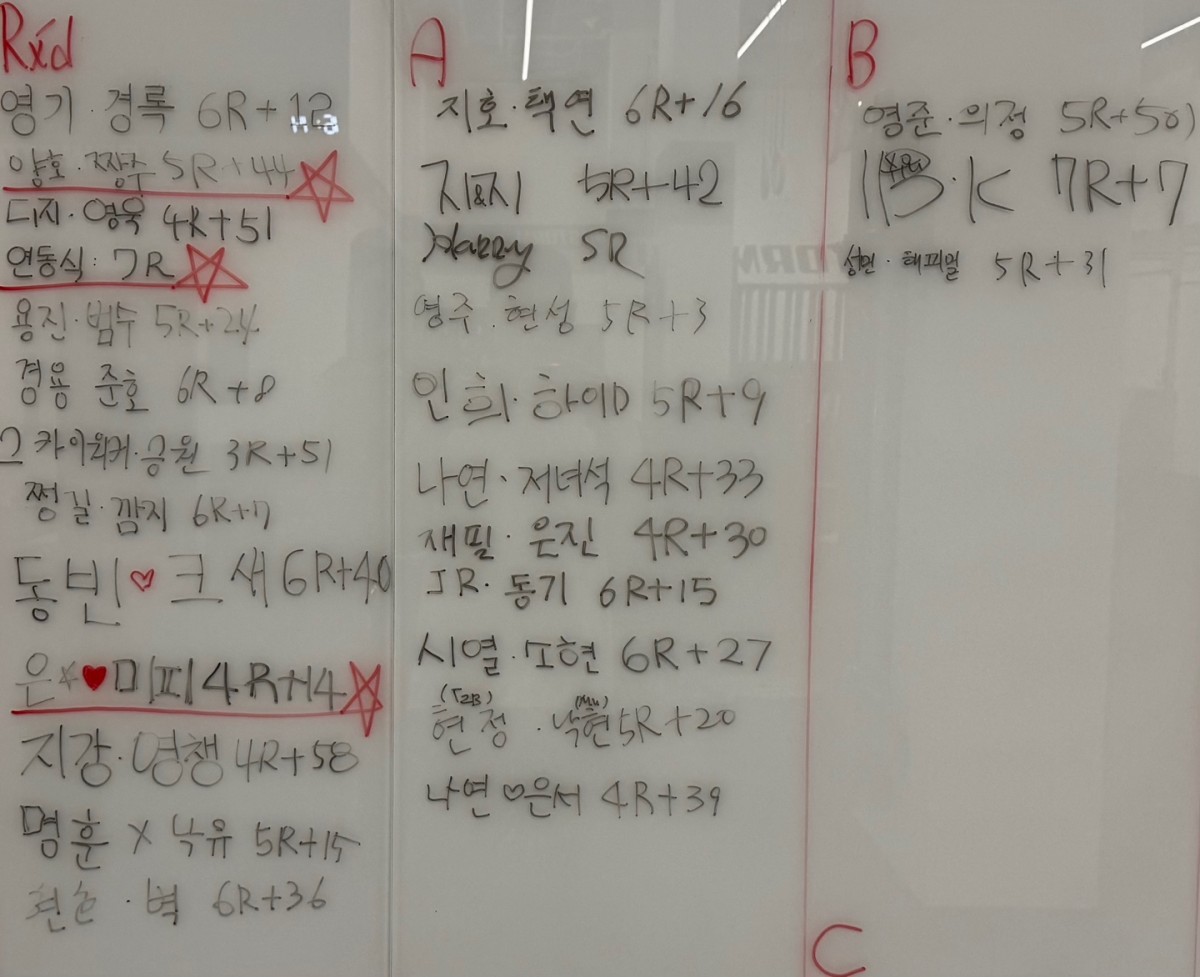 Rx'd
영기·경록 6R+12
양호·짱주 5R+44
디지·영욱 4R+51
연동식: 7R
용진·범수 5R+24
경용 준호 6R+8
그카이워커·승원 3R+51
쩡길·깜지 6R+17
동빈♡크새 6R+40
은☆♥미피 4R+14
지강·영챙 4R+58
명훈 X 낙유 5R+15
현손·벽 6R+36
A
지호·택연 6R+16
지&지 5R+42
Harry 5R
영주·현성 5R+3
인희·하이D 5R+9
나연·저녀석 4R+33
재필·은진 4R+30
JR·동기 6R+15
시열·소현 6R+27
현정·낙현 5R+20
나연♡은서 4R+39
B
영준·의정 5R+50
K 7R+7
성민·해피밀 5R+31
C